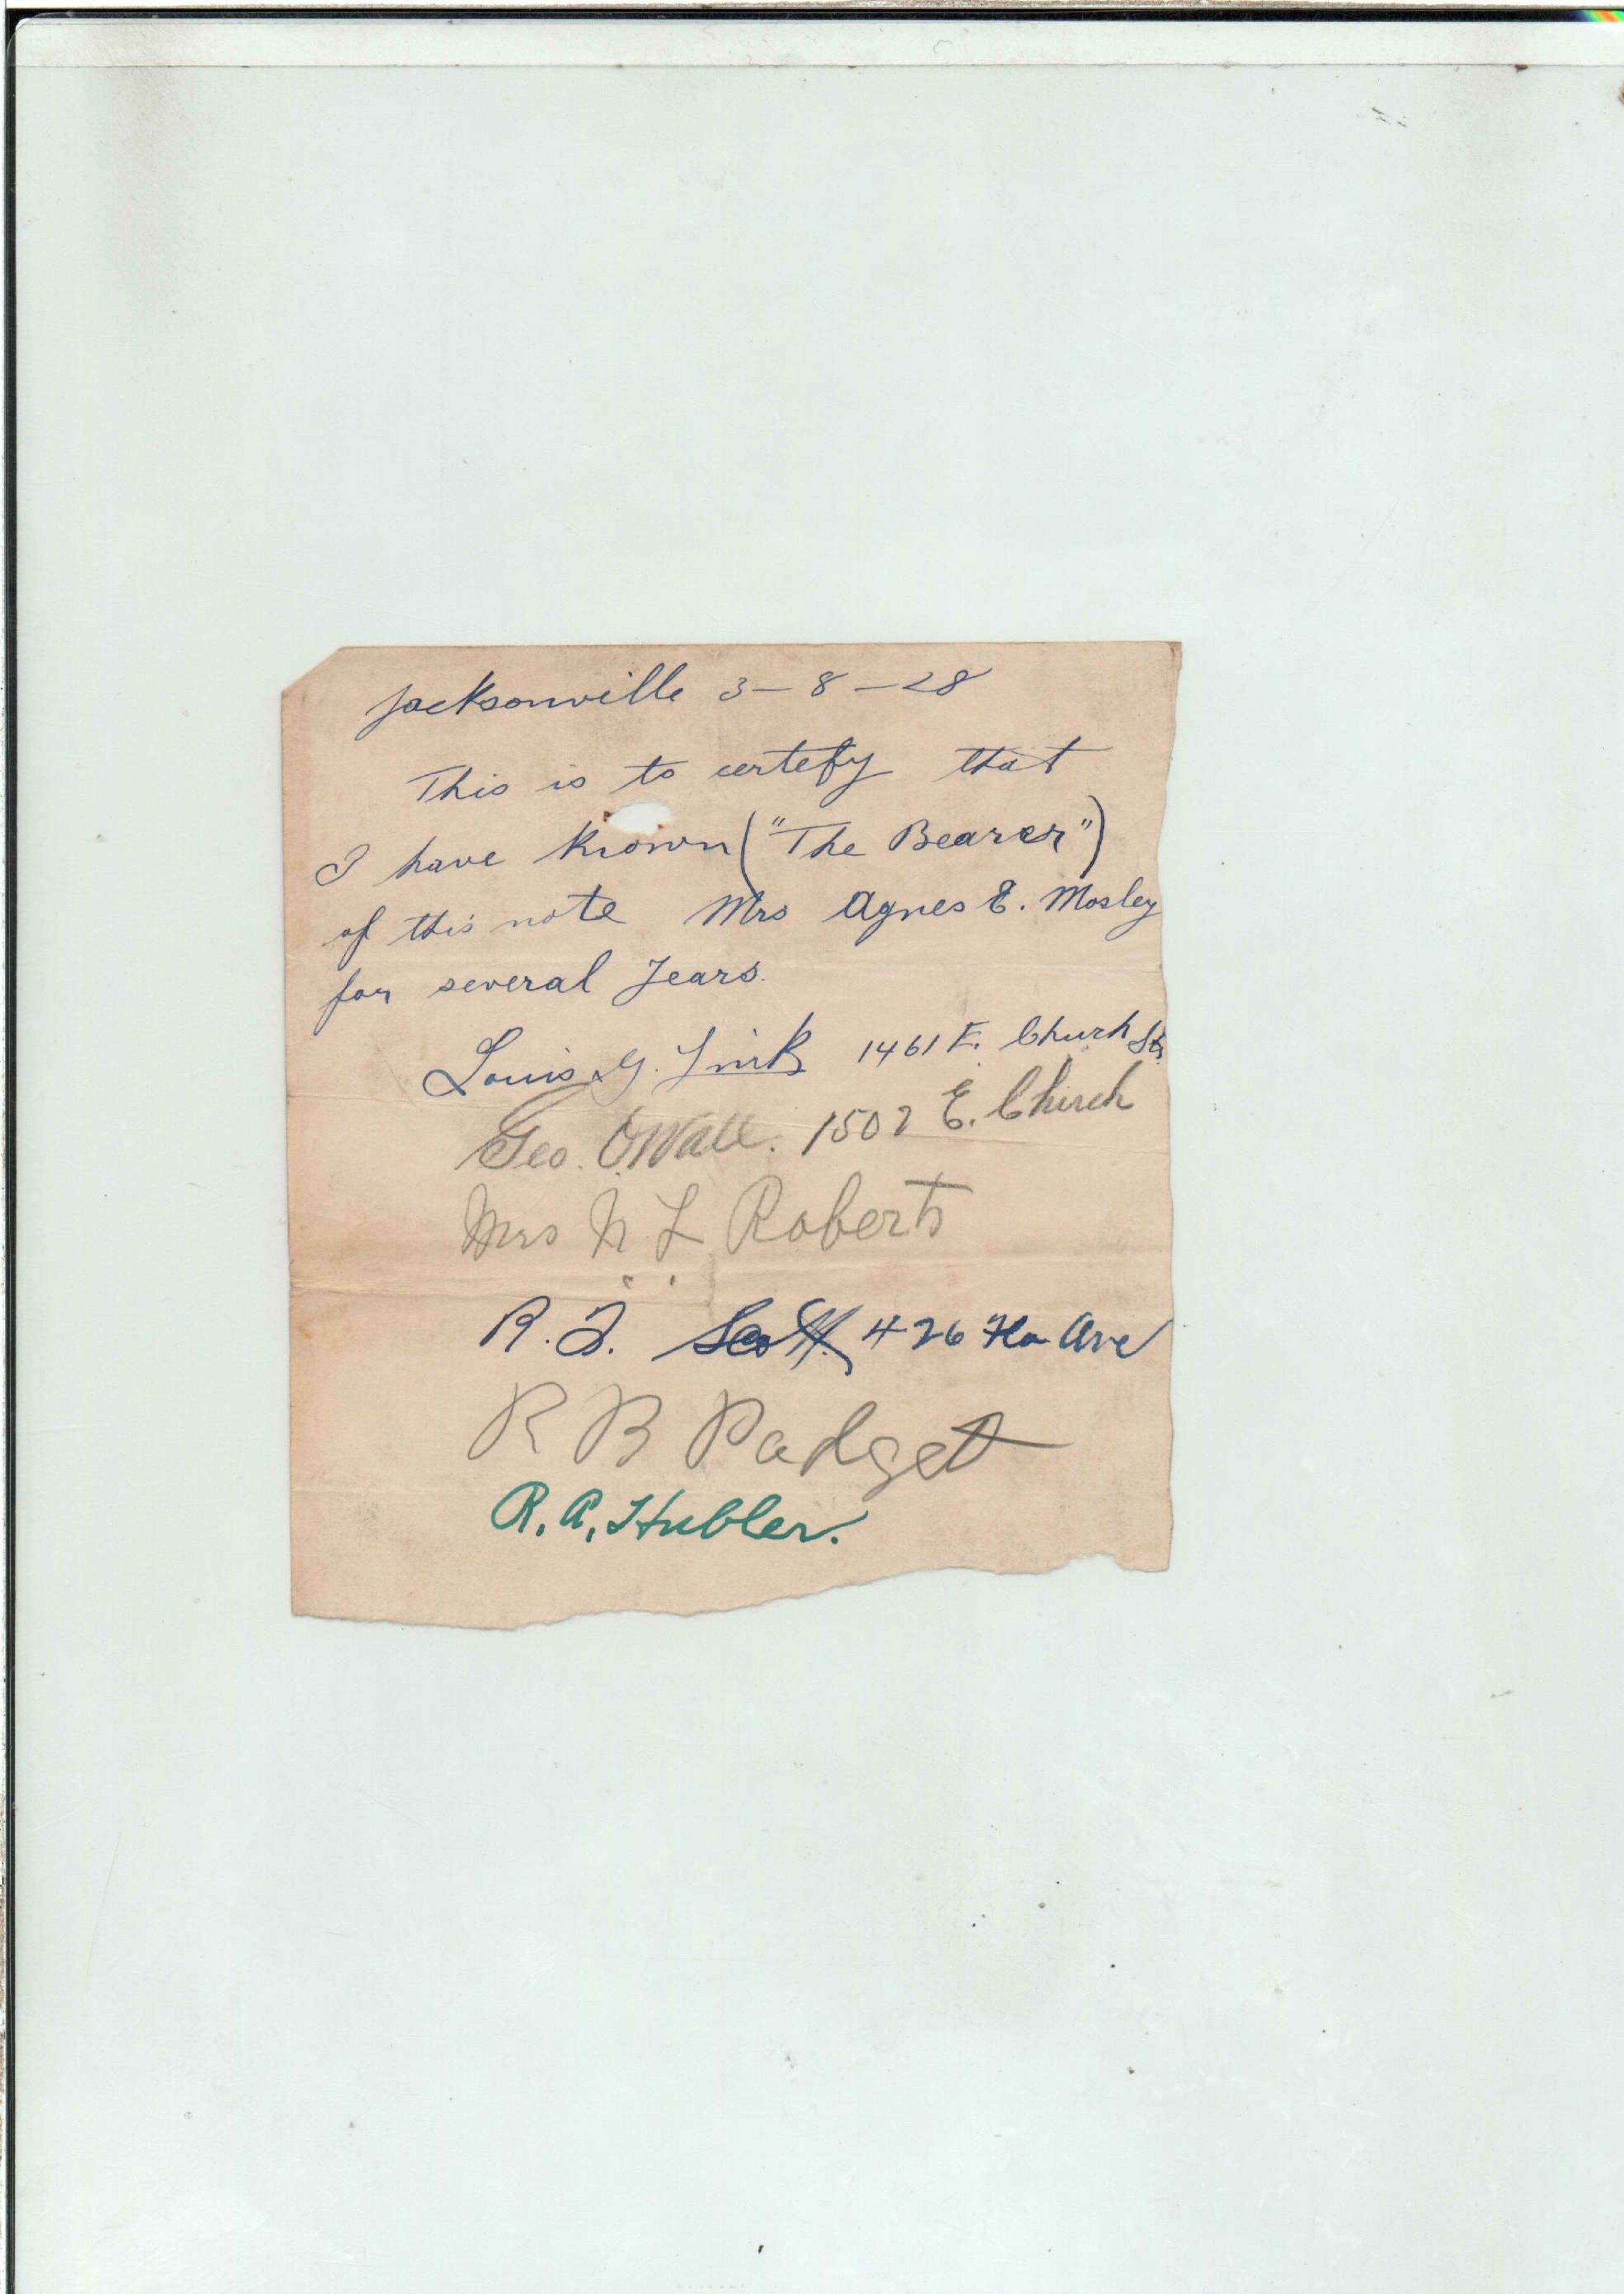 Jacksonville 3-8-28
This is to certefy that
I have known ("The Bearer")
of this note Mrs Agnes E. Mosley
for several Years.
Louis G. Fink 1461 E. Church St.
Geo. O. Wall. 1507 E. Church
Mrs N L Roberts
" "
R. F. Scott. 426 Fla Ave
R B Padget
R. A. Hubler.